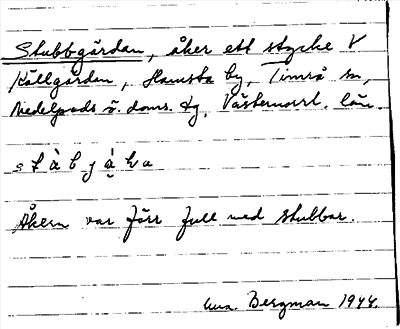 Stubbgårdan, åker ett stycke V
Källgårdan, Hamsta by, Timrå sn,
Medelpads ö. doms. tg, Västernorrl. län.
Åkern var förr full med stubbar.
Bergman 1944.